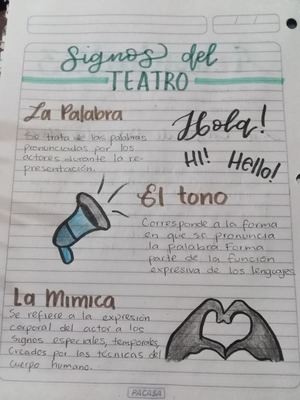 Signos del
TEATRO
La Palabra
Se trata de las palabras
pronunciadas por los
actores durante la re-
presentación.
Hola!
HI! Hello!
El tono
Corresponde a la forma
en que se pronuncia
la palabra. Forma
parte de la función
expresiva de los lenguajes
La Mimica
Se refiere a la expresión
corporal del actor a los
signos especiales, temporales,
creados por las técnicas del
cuerpo humano.
PACASA